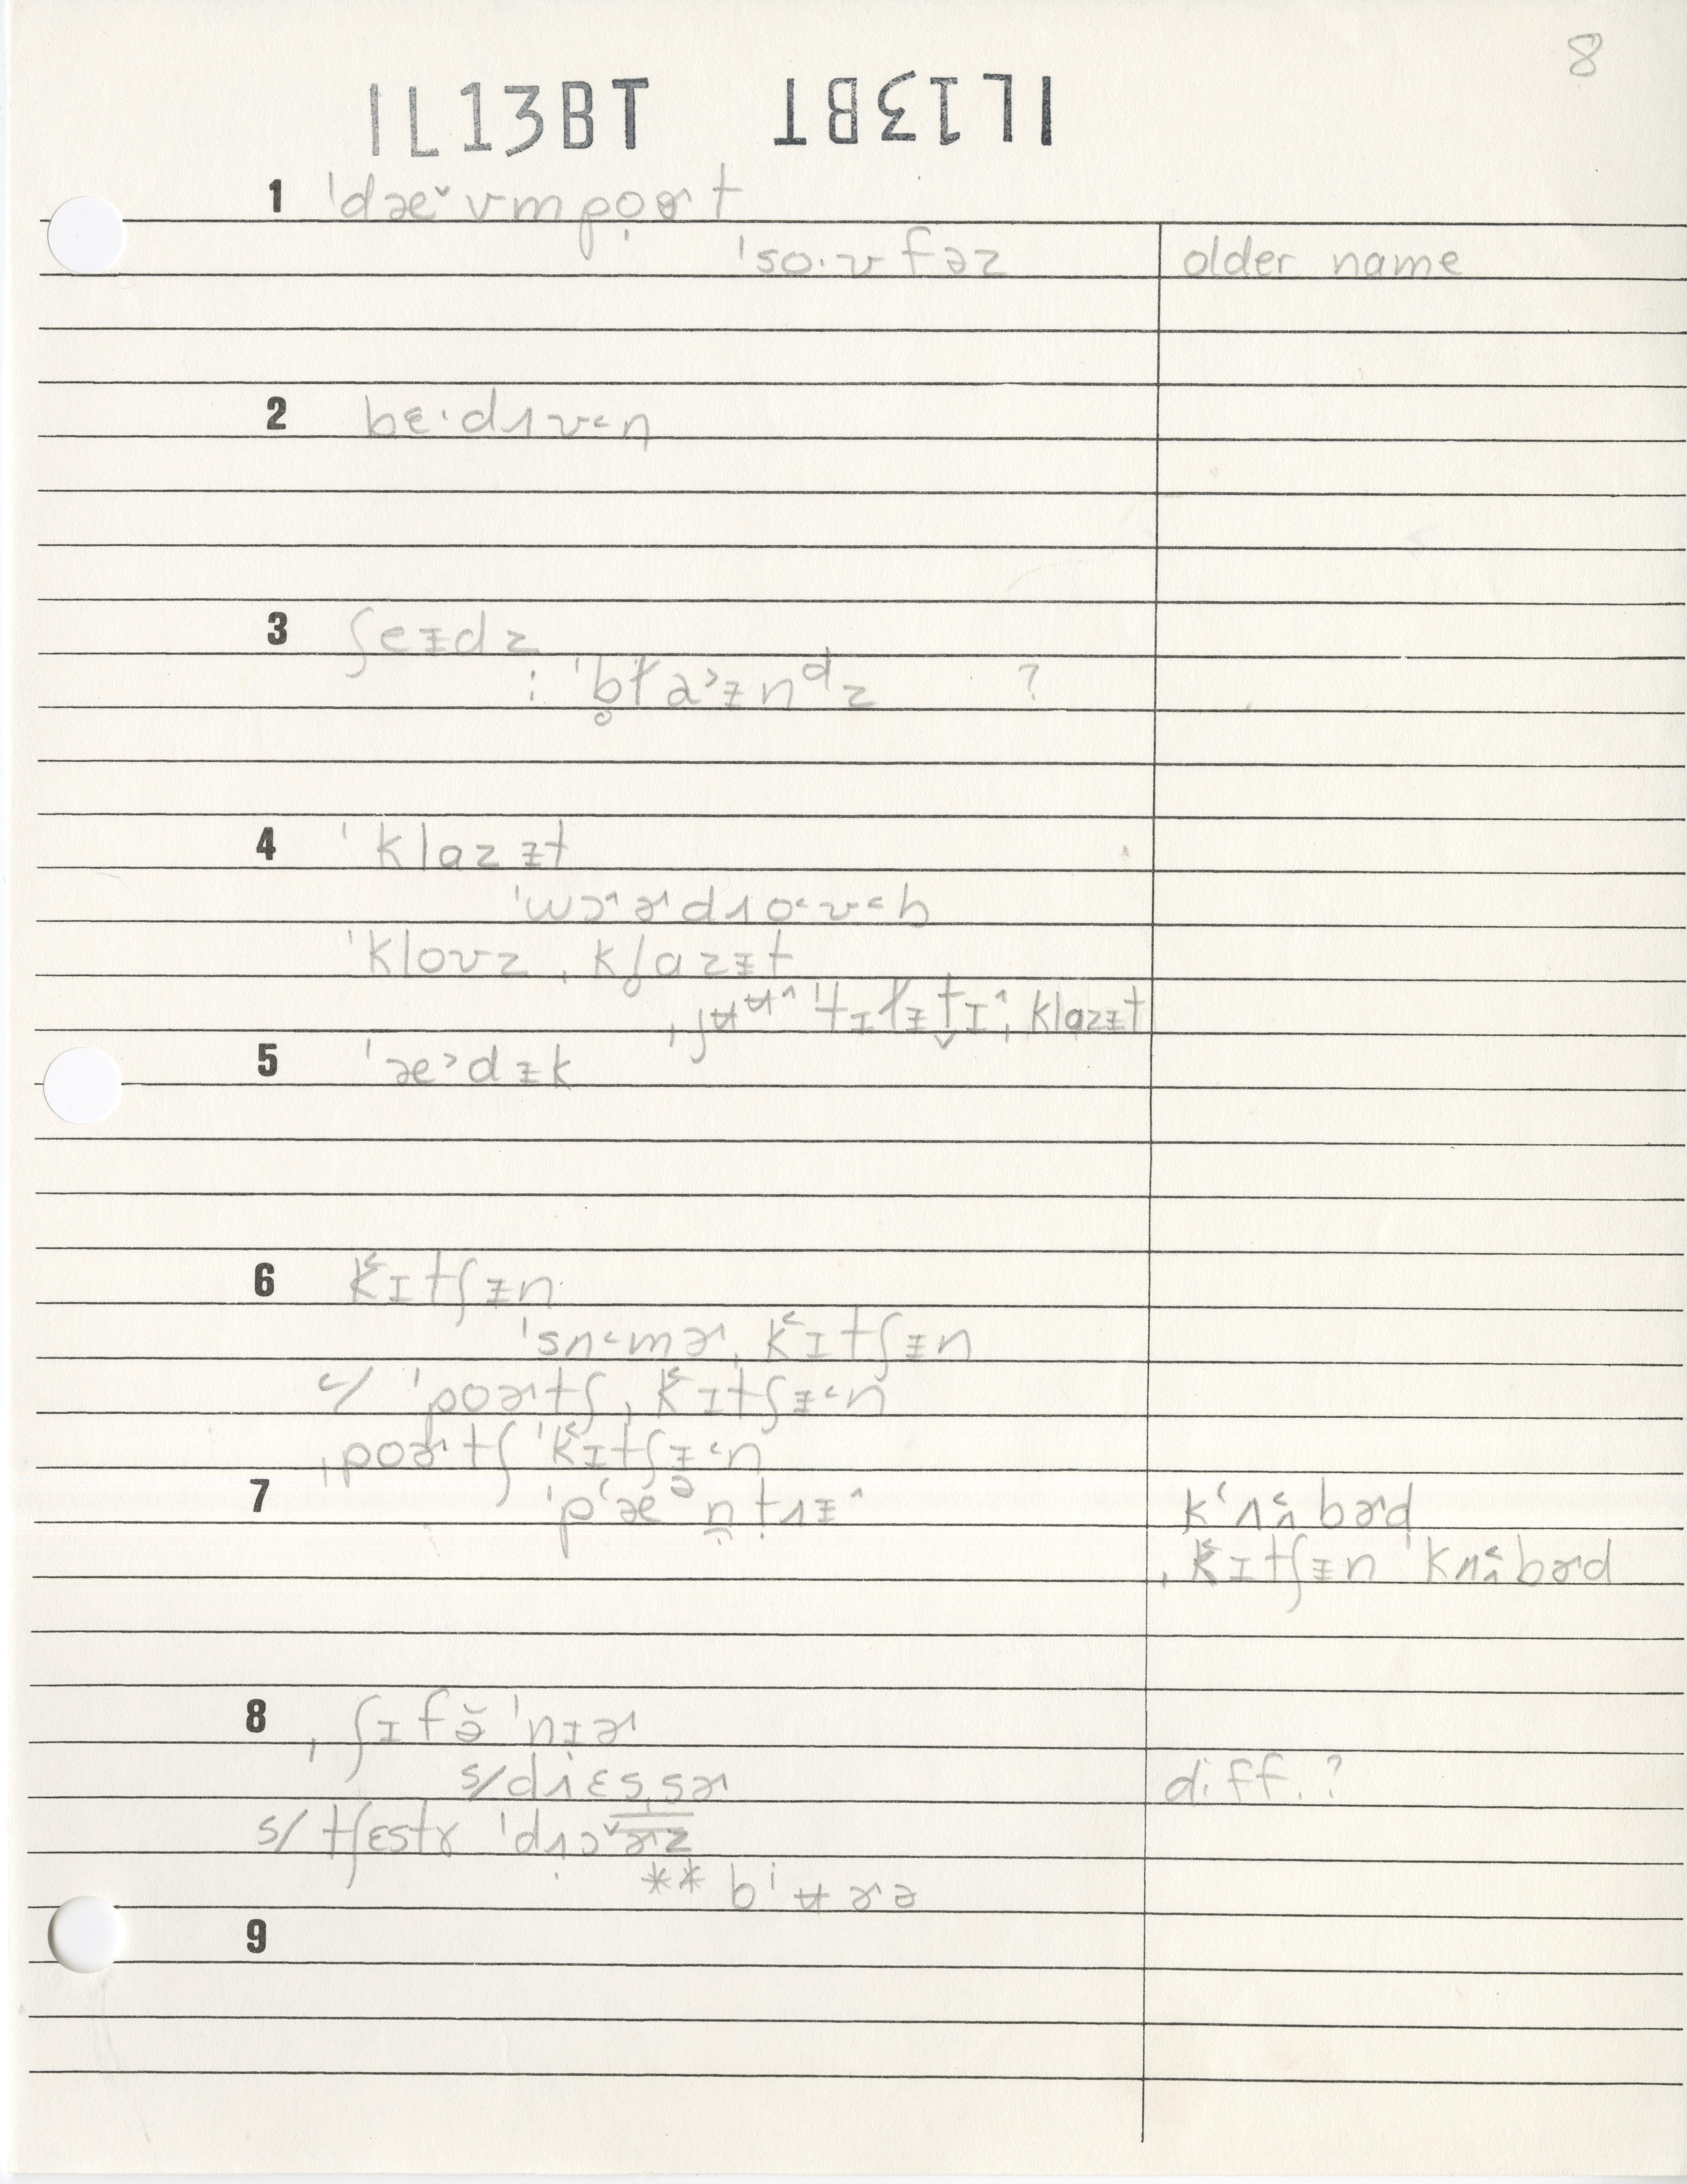 8
IL13BT IL13BT
1 ˈdæ˅vmpo̞ɚt
ˈso·ʊfəz older name
2 bɛ·dɹʊ˂n
3 ʃeɪ̵dz
: ˈb̥ɫa˃ɪ̵nᵈz ?
4 ˈklɑzɪ̵t
ˈwɔ˄ɚdɹo˂ʊ˂b
ˈkloʊz ˌkl̥ɑzɪ̵t
ˌjʉʉ˄ ˈtɪɫɪ̵t̬ɪ˄ ˌklɑzɪ̵t
5 ˈæ˃dɪ̵k
6 k˂ɪtʃɪ̵n
ˈsʌ˂mɚ ˌk˂ɪtʃɪ̵n
c/ ˈpoɚtʃ ˌk˂ɪtʃɪ̵˂n
ˌpoɚtʃ ˈk˂ɪtʃɪ̵˂n
7 ˈpʻæᵊntɹɪ̵˄ kʻʌ˄bɚd
ˌk˂ɪtʃɪ̵n ˈkʌ˄bɚd
8 ˌʃɪfə̆ˈnɪɚ
s/dɹɛsˌsɚ diff.?
s/tʃɛstɤ ˈdɹɔ˅ɚz
** bˈʉɚə
9